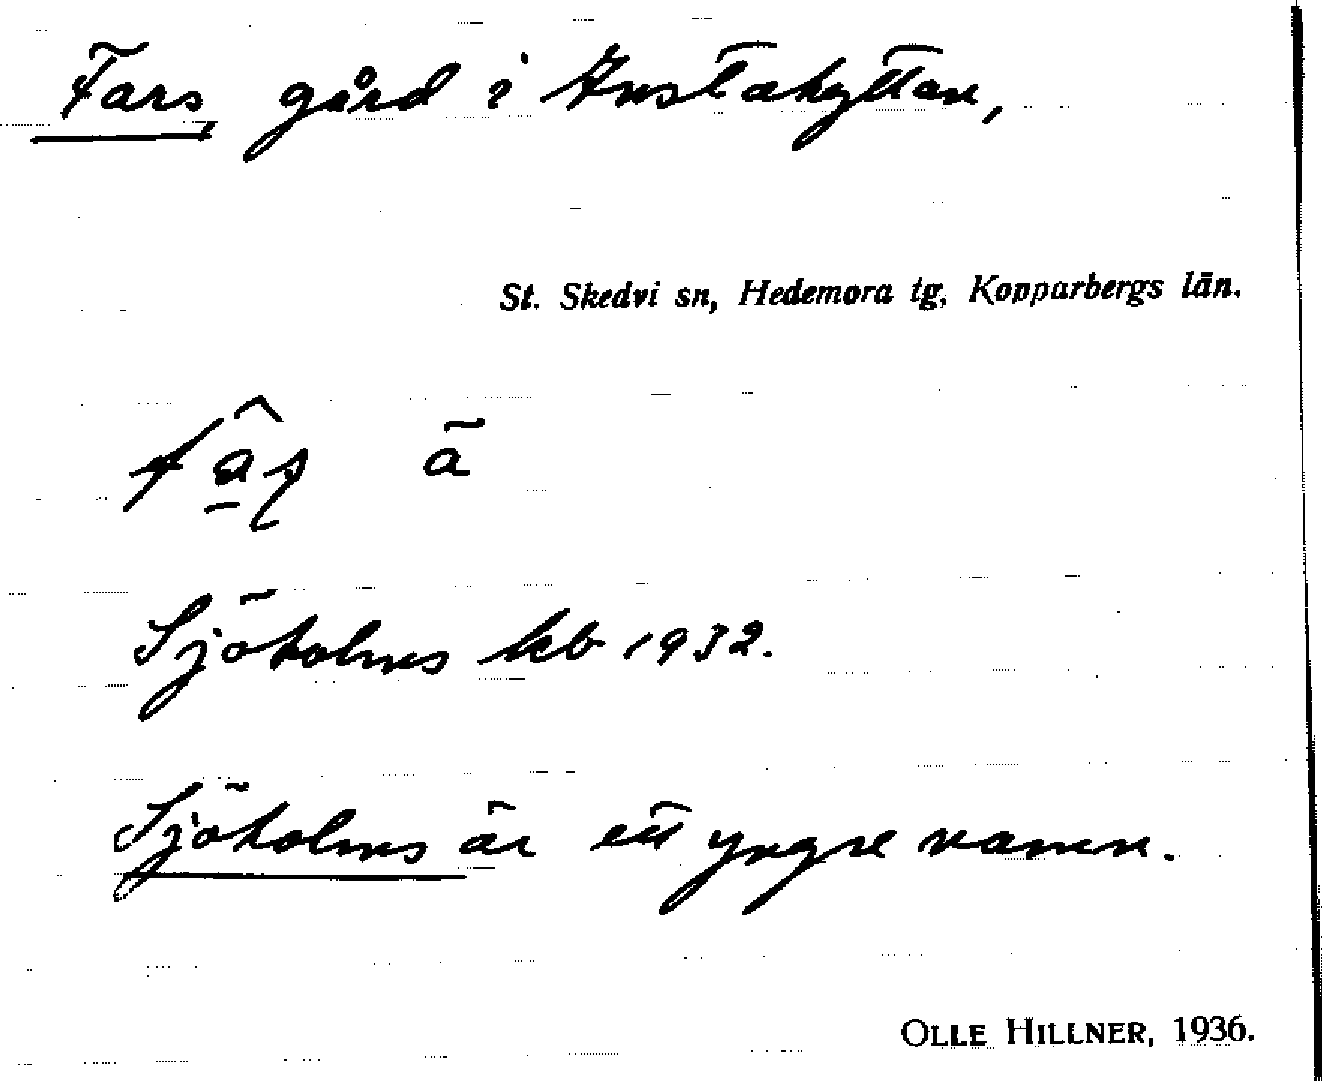 Fars gård i Knustahyttan,
St. Skedvi sn, Hedemora tg, Kopparbergs län.
ā
Sjöholms kb 1932.
Sjöholms är ett yngre namn.
OLLE HILLNER, 1936.